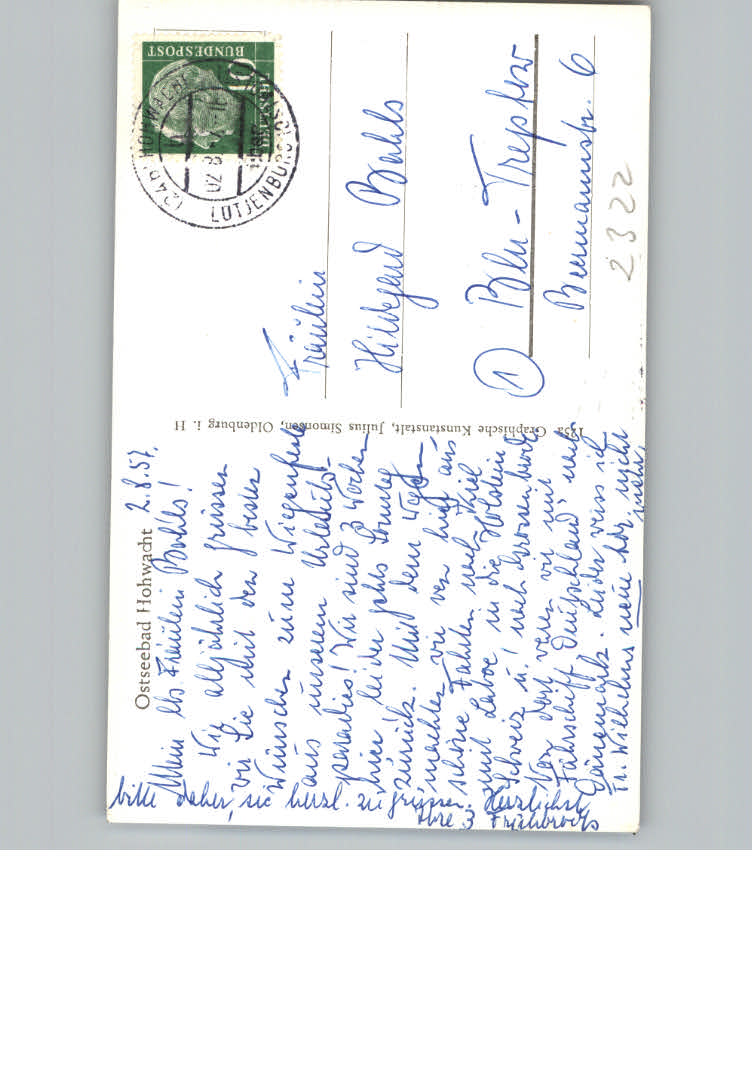 Ostseebad Hohwacht
2.8.57.
Mein lb. Fräulein Bahls!
Wie alljährlich grüssen
wir Sie mit den besten
Wünschen zum Wiegenfeste
aus unserem Urlaubs-
paradies! Wir sind 3 Wochen
hier leider schon Sonntag
zurück. Mit dem Wagen
machten wir von hier aus
schöne Fahrten nach Kiel
und Laboe in die Holstein.
Schweiz u. nach
Von dort waren wir mit
Fährschiff „Deutschland" nach
Dänemark. Leider weiss ich
Fr. Wilhelms neue Adr. nicht
mehr,
bitte daher, sie herzl. zu grüssen. Herzlichst
Ihre 3 Frühbrodts
1252 Graphische Kunstanstalt, Julius Simonsen, Oldenburg i. H
BUNDESPOST
10
(24b) HOHWACHT
LÜTJENBURG
02.8.57.-11
Fräulein
Hildegard Bahls
① Bln-Treptow
Beermannstr. 6
2322